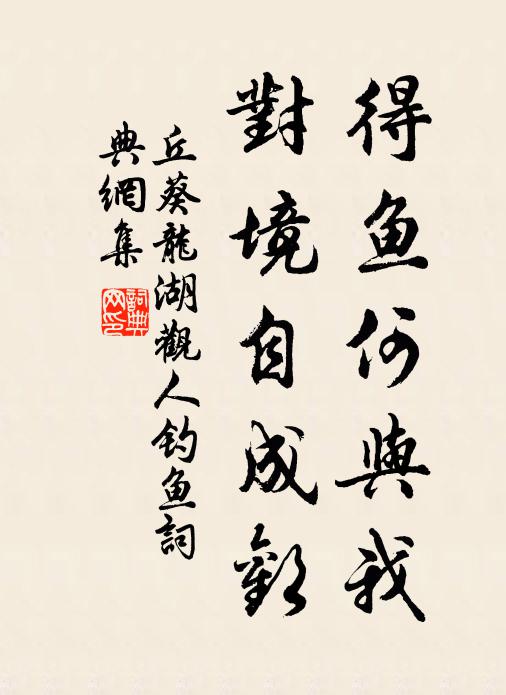 得鱼何與我
對境自成歡
丘葵龍湖觀人钓鱼詞
典網集
詞典
网印